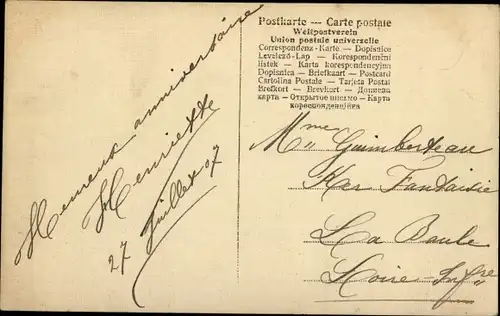 Postkarte — Carte postale
Weltpostverein
Union postale universelle
Correspondenz-Karte — Dopisnice
Levelező-Lap — Korespondenční
lístek — Karta korespondencyjna
Dopisnica — Briefkaart — Postcard
Cartolina Postale — Tarjeta Postal
Brefkort — Brevkort — Дописна
карта — Открытое письмо — Карта
кореспонденційна
Heureux anniversaire
Henriette
27 Juillet 07
Mme Guimberteau
Ker Fantaisie
La Baule
Loire-Infre